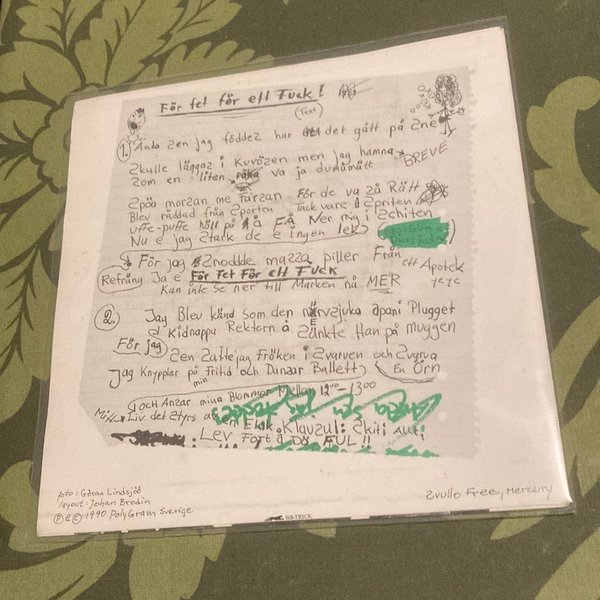 För fet för ett Fuck!
Text
1. Ända Sen jag föddes har det gått på Sne
Skulle läggas i Kuvösen men jag hamna BREVE
Som en liten va ja dumåmätt
Spöa morsan me Tarzan För de va Så Rätt
Blev räddad från Sporten Tack vare Spriten
uffe-puffe höll på å FÅ Ner mig i Schiten
Nu e jag Stark de e ingen lek
För jag Snodde massa piller Från ett Apotek
Refräng Ja e För Fet För ett Fuck yeye
Kan inte Se ner till Marken nå MER
2. Jag Blev känd som den nervsjuka apan i Plugget
Kidnappa Rektorn å Sänkte Han på muggen
För jag Sen Satte jag Fröken i Svarven och Svarva
Jag Knypplar på min Fritid och Dansar Ballett En Örn
och Ansar mina Blommor Mellan 12⁰⁰-13⁰⁰
Mitt Liv det Styrs av en Elak Klauzul: Skit i Allt i
Lev Fort å Dö FUL!!
Foto: Göran Lindsjöö
layout: Johan Brodin
Ⓟ & © 1990 PolyGram Sverige
Svullo Free, Mercury